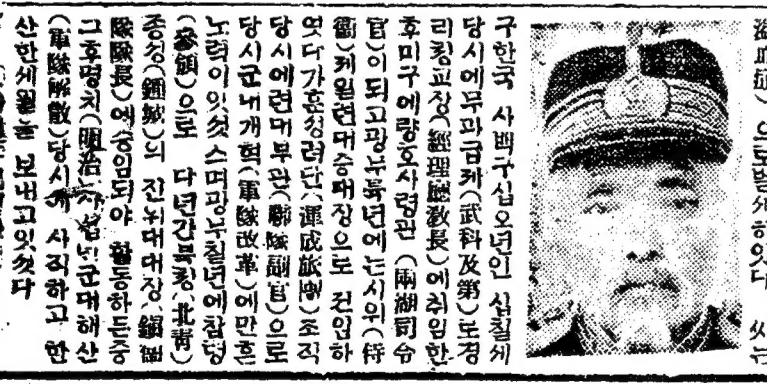 구한국 사백구십오년인 십칠세
당시에무과급제(武科及第)도경
리청교장(經理廳敎長)에취임한
후미구에량호사령관(兩湖司令
官)이되고광무륙년에는시위(侍
衛)제일련대승대장으로전임하
엿다가혼성려단(混成旅團)조직
당시에련대부관(聯隊副官)으로
당시군내개혁(軍隊改革)에만흔
노력이잇섯스며광무칠년에참령
(參領)으로 다년간북청(北靑)
종성(鍾城)의 진위대대장(鎭衛
隊隊長)에승임되야 활동하든중
그후명치(明治)사십 년군대해산
(軍隊解散)당시에 사직하고 한
산한세월을 보내고잇섯다